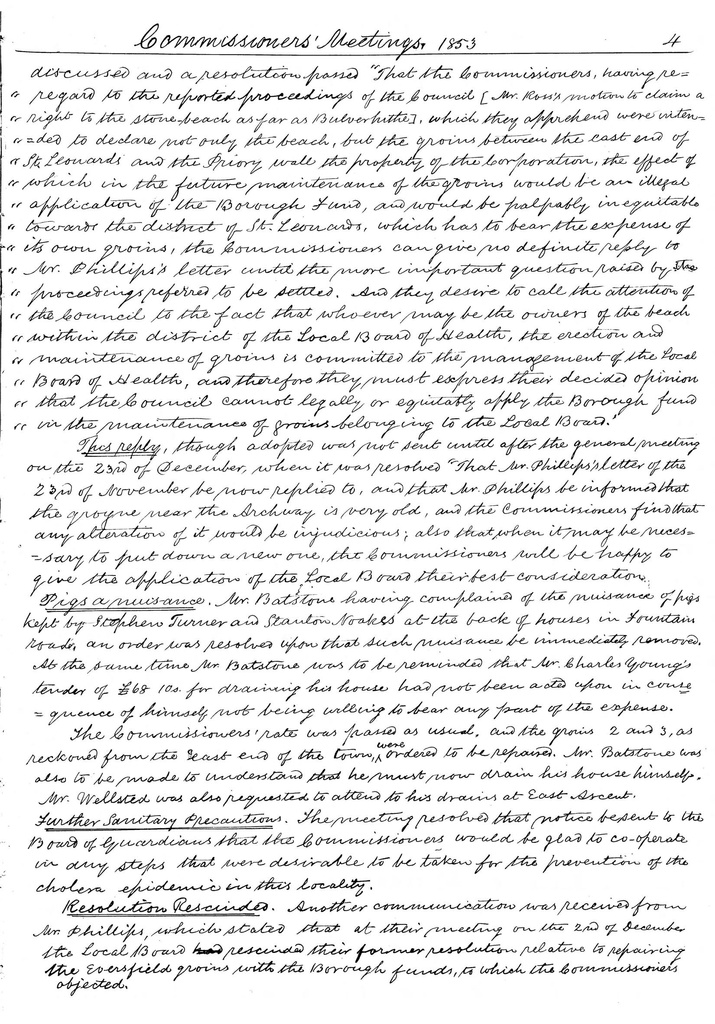 Commissioners' Meetings, 1853 4
discussed and a resolution passed "That the Commissioners, having re=
" regard to the reported proceedings of the Council [Mr. Ross's motion to claim a
" right to the stone-beach as far as Bulverhithe], which they apprehend were inten=
" =ded to declare not only the beach, but the groins between the east end of
" St. Leonards and the Priory wall the property of the Corporation, the effect of
" which in the future maintenance of the groins would be an illegal
" application of the Borough Fund, and would be palpably inequitable
" towards the district of St. Leonards, which has to bear the expense of
" its own groins, the Commissioners can give no definite reply to
" Mr. Phillips's letter until the more important question raised by the
" proceedings referred to be settled. And they desire to call the attention of
" the Council to the fact that whoever may be the owners of the beach
" within the district of the Local Board of Health, the erection and
" maintenance of groins is committed to the management of the Local
" Board of Health, and therefore they must express their decided opinion
" that the Council cannot legally or equitably apply the Borough fund
" in the maintenance of groins belonging to the Local Board."
This reply, though adopted was not sent until after the general meeting
on the 23rd of December, when it was resolved "That Mr. Phillips's letter of the
23rd of November be now replied to, and that Mr. Phillips be informed that
the grogne near the Archway is very old, and the Commissioners find that
any alteration of it would be injudicious; also that when it may be neces=
=sary to put down a new one, the Commissioners will be happy to
give the application of the Local Board their best consideration.
Pigs a nuisance. Mr. Batstone having complained of the nuisance of pigs
kept by Stephen Turner and Stanton Noakes at the back of houses in Fountain
road, an order was resolved upon that such nuisance be immediately removed.
At the same time Mr. Batstone was to be reminded that Mr. Charles Young's
tender of £68 10s. for draining his house had not been acted upon in conse
=quence of himself not being willing to bear any part of the expense.
The Commissioners' rate was passed as usual, and the groins 2 and 3, as
reckoned from the East end of the town, were ordered to be repaired. Mr. Batstone was
also to be made to understand that he must now drain his house himself.
Mr. Wellsted was also requested to attend to his drains at East Ascent.
Further Sanitary Precautions. The meeting resolved that notice be sent to the
Board of Guardians that the Commissioners would be glad to co-operate
in any steps that were desirable to be taken for the prevention of the
cholera epidemic in this locality.
Resolution Rescinded. Another communication was received from
Mr. Phillips, which stated that at their meeting on the 2nd of December
the Local Board had rescinded their former resolution relative to repairing
the Eversfield groins with the Borough funds, to which the Commissioners
objected.